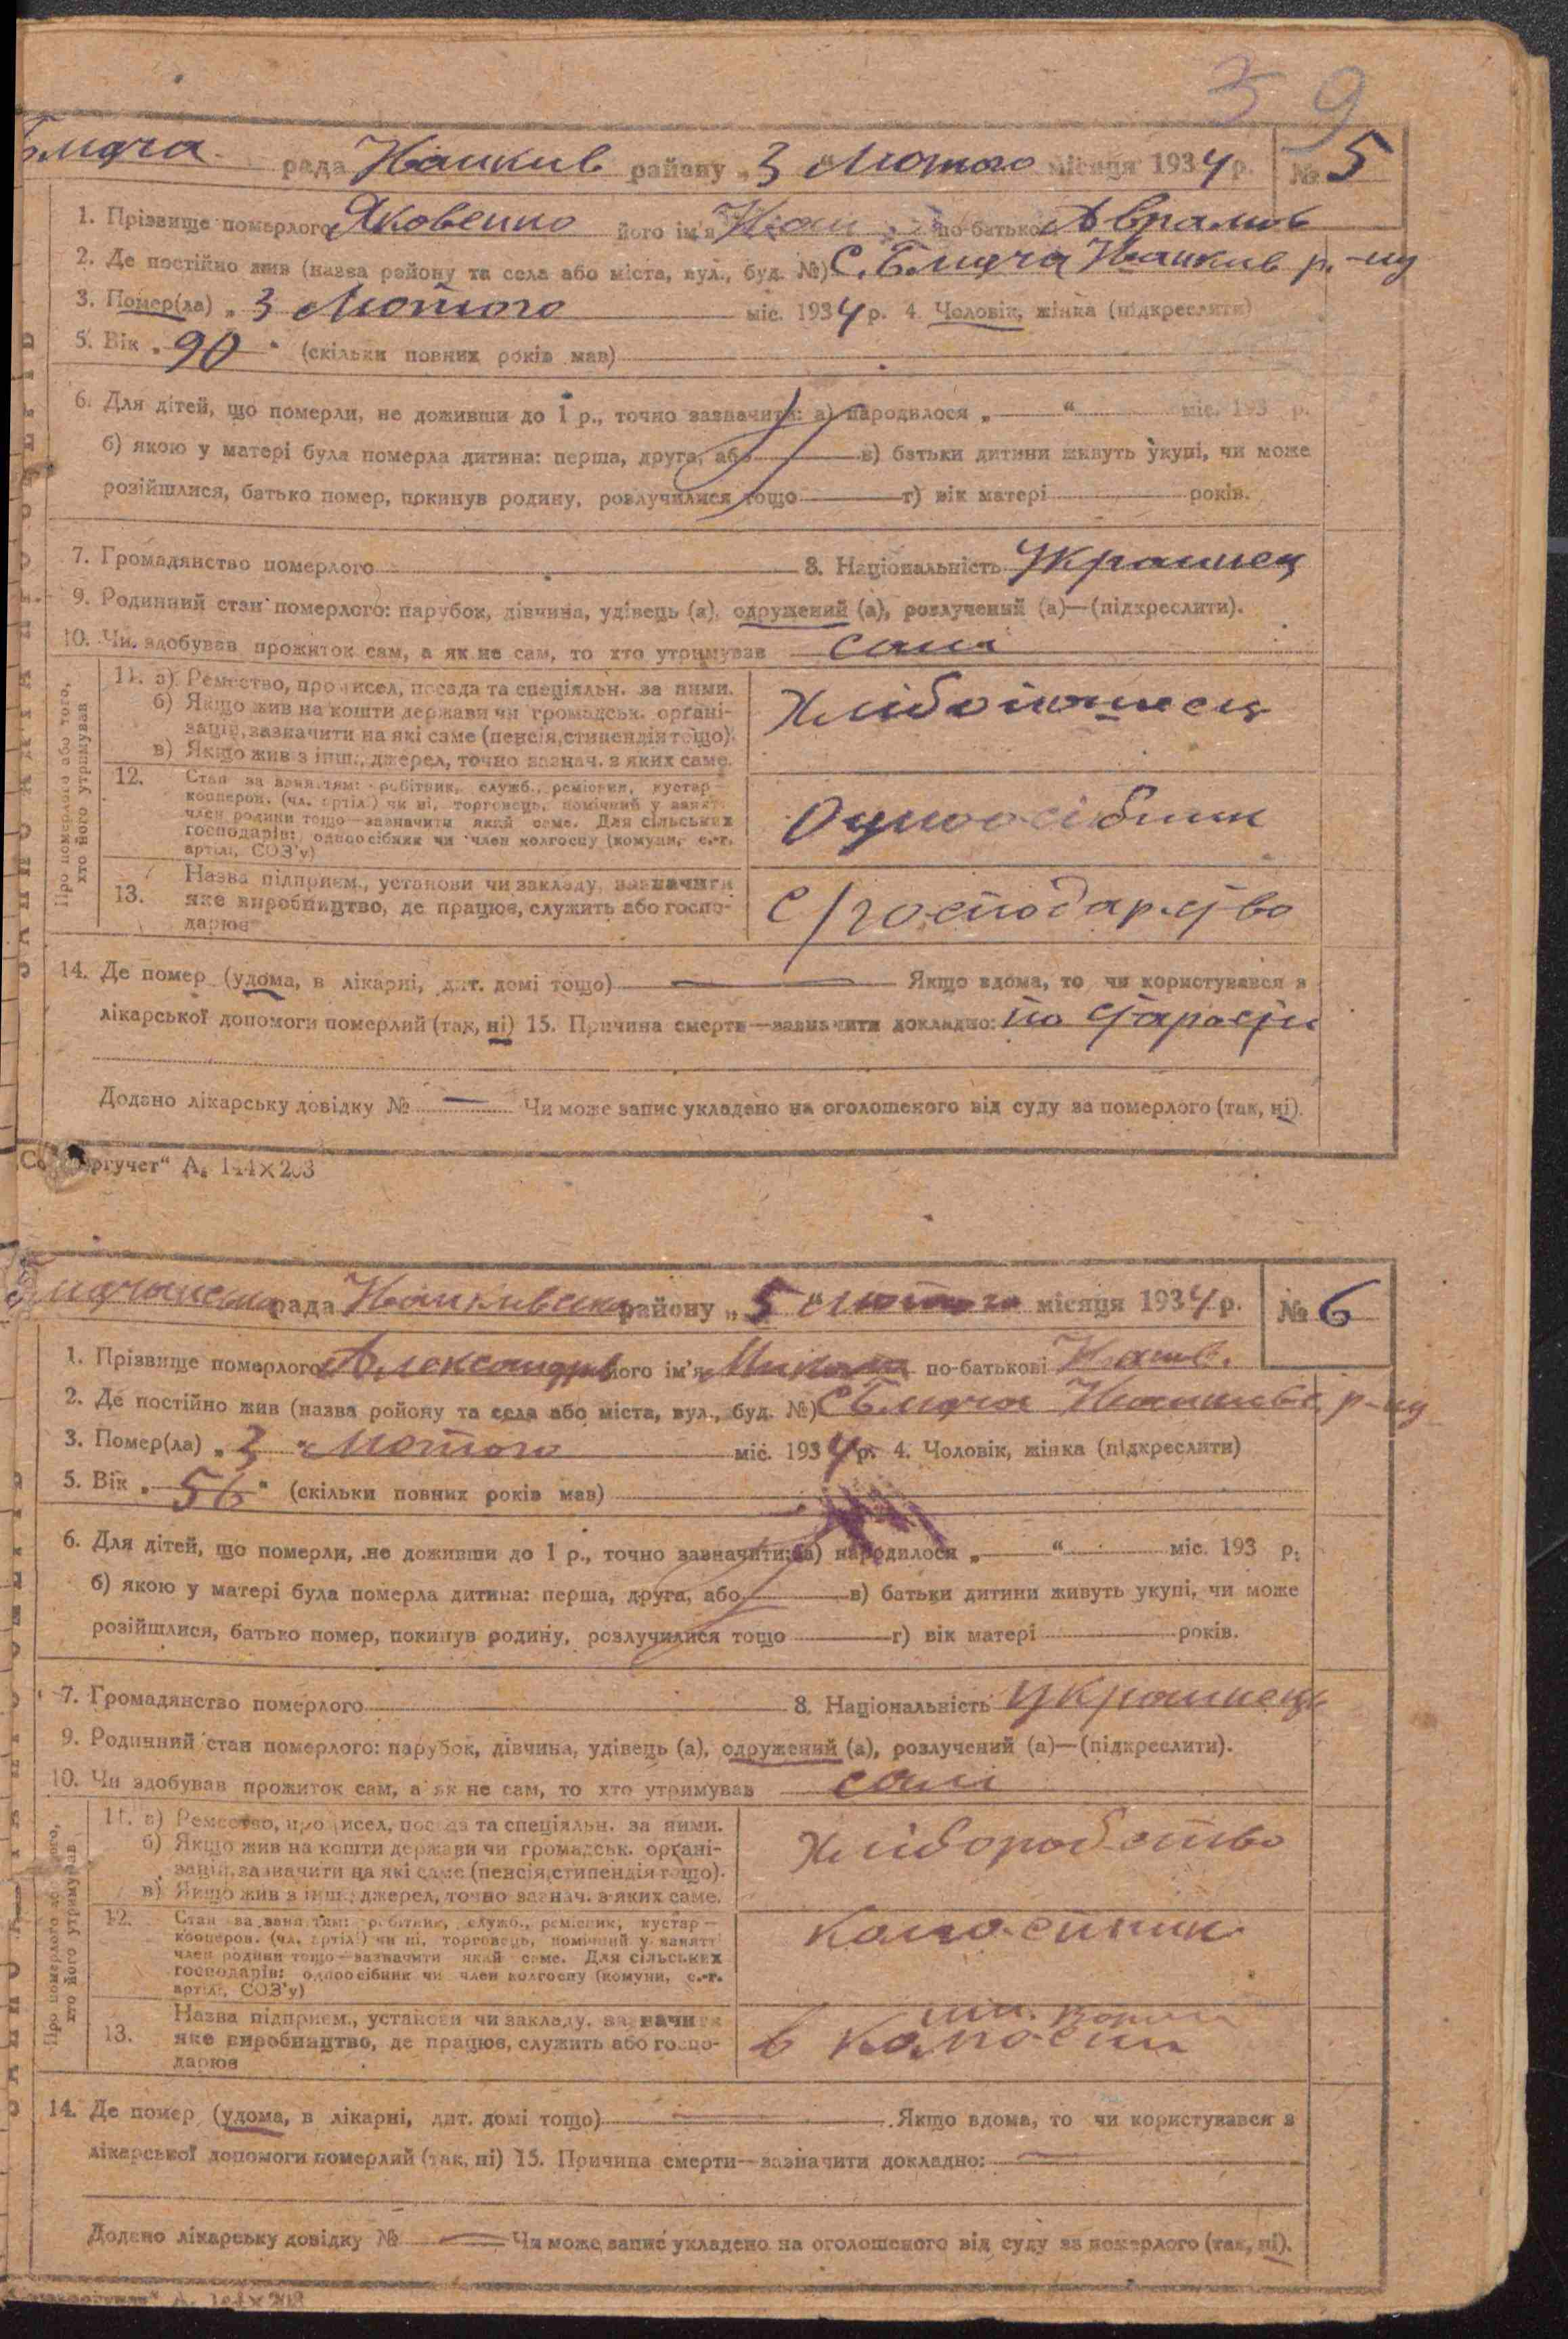 39
Блидча рада Іванків району „3“ Лютого місяця 1934 р. № 5
1. Прізвище померлого Яковенко його ім'я Іван по-батькові Аврамов
2. Де постійно жив (назва району та села або міста, вул., буд. №) С. Блидча Іванків р-ну
3. Помер(ла) „3 Лютого міс. 1934 р. 4. Чоловік, жінка (підкреслити)
5. Вік „90“ (скільки повних років мав)
6. Для дітей, що померли, не доживши до 1 р., точно зазначити: а) народилося „ “ міс. 193 р.
б) якою у матері була померла дитина: перша, друга, або в) батьки дитини живуть укупі, чи може
розійшлися, батько помер, покинув родину, розлучилися тощо г) вік матері років.
7. Громадянство померлого 8. Національність Украинец
9. Родинний стан померлого: парубок, дівчина, удівець (а), одружений (а), розлучений (а)—(підкреслити).
10. Чи здобував прожиток сам, а як не сам, то хто утримував сам
Про померлого або того, хто його утримував
11. а) Ремество, промисел, посада та спеціяльн. за ними.
б) Якщо жив на кошти держави чи громадськ. органі-
зацій, зазначити на які саме (пенсія, стипендія тощо).
в) Якщо жив з інш. джерел, точно зазнач. з яких саме.
12. Стан за занятям: робітник, служб., ремісник, кустар—
кооперов. (чл. артілі) чи ні, торговець, помічний у занятті
член родини тощо—зазначити який саме. Для сільських
господарів: одноосібник чи член колгоспу (комуни, с.-г.
артілі, СОЗ'у)
Одноосібник
13. Назва підприєм., установи чи закладу, зазначити
яке виробництво, де працює, служить або госпо-
дарює
С/господарство
14. Де помер (удома, в лікарні, дит. домі тощо) Якщо вдома, то чи користувався з
лікарської допомоги померлий (так, ні) 15. Причина смерти—зазначити докладно: по старости
Додано лікарську довідку № — Чи може запис укладено на оголошеного від суду за померлого (так, ні).
ргучет“ А₅ 144×203
рада Іванківська району „5“ лютого місяця 1934 р. № 6
1. Прізвище померлого Александров його ім'я Микола по-батькові Іванов.
2. Де постійно жив (назва району та села або міста, вул., буд. №) С Блидча р-ну
3. Помер(ла) „3“ Лютого міс. 1934 р. 4. Чоловік, жінка (підкреслити)
5. Вік „56“ (скільки повних років мав)
6. Для дітей, що померли, не доживши до 1 р., точно зазначити: а) народилося „ “ міс. 193 р.
б) якою у матері була померла дитина: перша, друга, або в) батьки дитини живуть укупі, чи може
розійшлися, батько помер, покинув родину, розлучилися тощо г) вік матері років.
7. Громадянство померлого 8. Національність Украинець
9. Родинний стан померлого: парубок, дівчина, удівець (а), одружений (а), розлучений (а)—(підкреслити).
10. Чи здобував прожиток сам, а як не сам, то хто утримував сам
Про померлого або того, хто його утримував
11. а) Ремество, промисел, посада та спеціяльн. за ними.
б) Якщо жив на кошти держави чи громадськ. органі-
зацій, зазначити на які саме (пенсія, стипендія тощо).
в) Якщо жив з інш. джерел, точно зазнач. з яких саме.
Хліборобство
12. Стан за занятям: робітник, служб., ремісник, кустар—
кооперов. (чл. артілі) чи ні, торговець, помічний у занятті
член родини тощо—зазначити який саме. Для сільських
господарів: одноосібник чи член колгоспу (комуни, с.-г.
артілі, СОЗ'у)
колгоспник
13. Назва підприєм., установи чи закладу, зазначити
яке виробництво, де працює, служить або госпо-
дарює
в колгоспі
14. Де помер (удома, в лікарні, дит. домі тощо) Якщо вдома, то чи користувався з
лікарської допомоги померлий (так, ні) 15. Причина смерти—зазначити докладно: —
Додано лікарську довідку № — Чи може запис укладено на оголошеного від суду за померлого (так, ні).